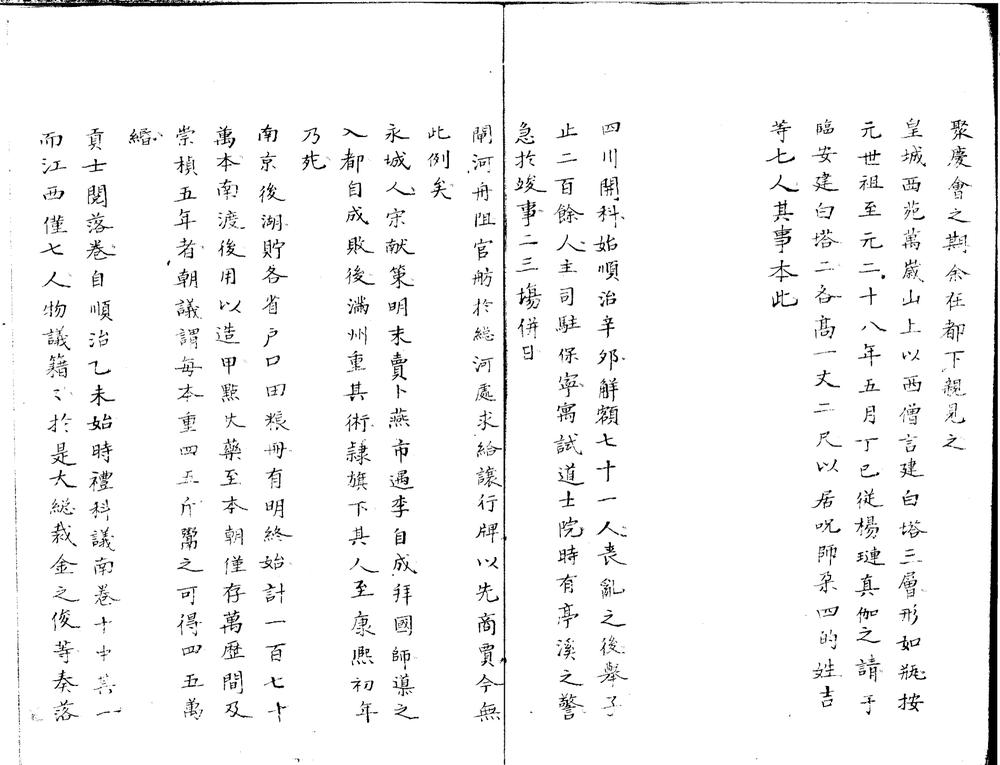 聚慶會之期余在都下親見之
皇城西苑萬歲山上以西僧言建白塔三層形如瓶按
元世祖至元二十八年五月丁巳從楊璉真伽之請于
臨安建白塔二各高一丈二尺以居呪師朶四的姓吉
等七人其事本此
四川開科始順治辛夘解額七十一人丧亂之後舉子
止二百餘人主司駐保寧寓試道士院時有亭溪之警
急於竣事二三塲併日
閘河舟阻官舫於總河處求給讓行牌以先商賈今無
此例矣
永城人宋献策明末賣卜燕市遇李自成拜國師導之
入都自成敗後滿州重其術隷旗下其人至康熙初年
乃死
南京後湖貯各省戶口田粮冊有明終始計一百七十
萬本南渡後用以造甲點火藥至本朝僅存萬歷間及
崇楨五年者朝議謂每本重四五斤鬻之可得四五萬
緡
貢士閱落卷自順治乙未始時禮科議南卷十中其一
而江西僅七人物議籍〻於是大總裁金之俊等奏落